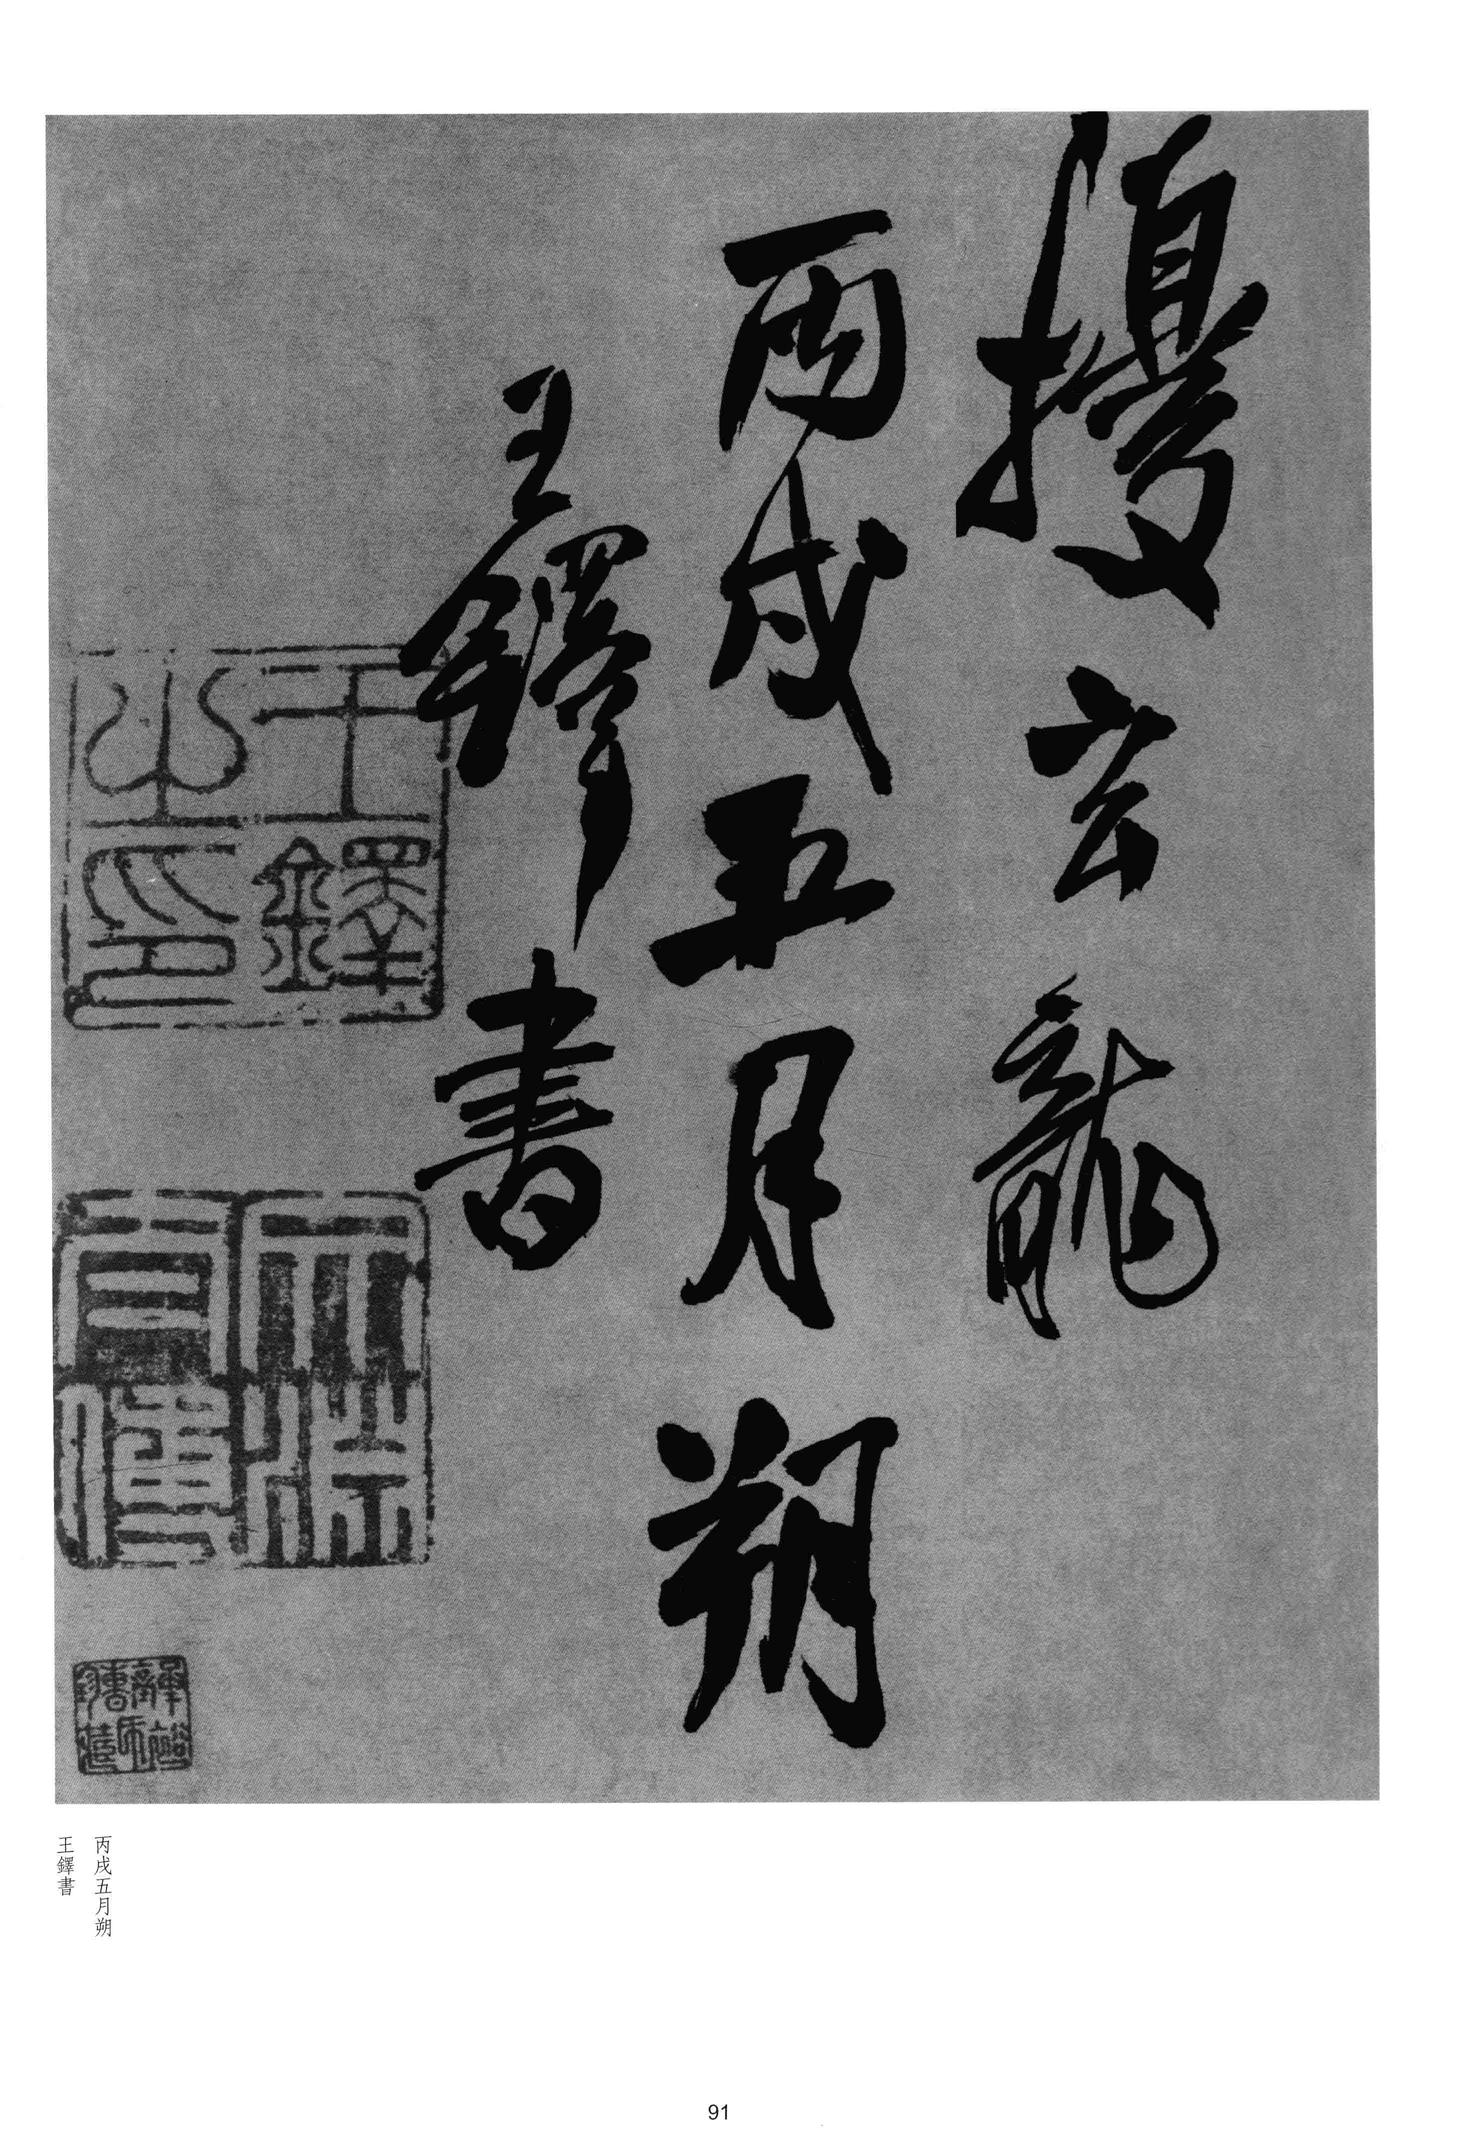 擾玄龍
丙戌五月朔
王鐸書
王鐸之印
丙戌五月朔
王鐸書
91